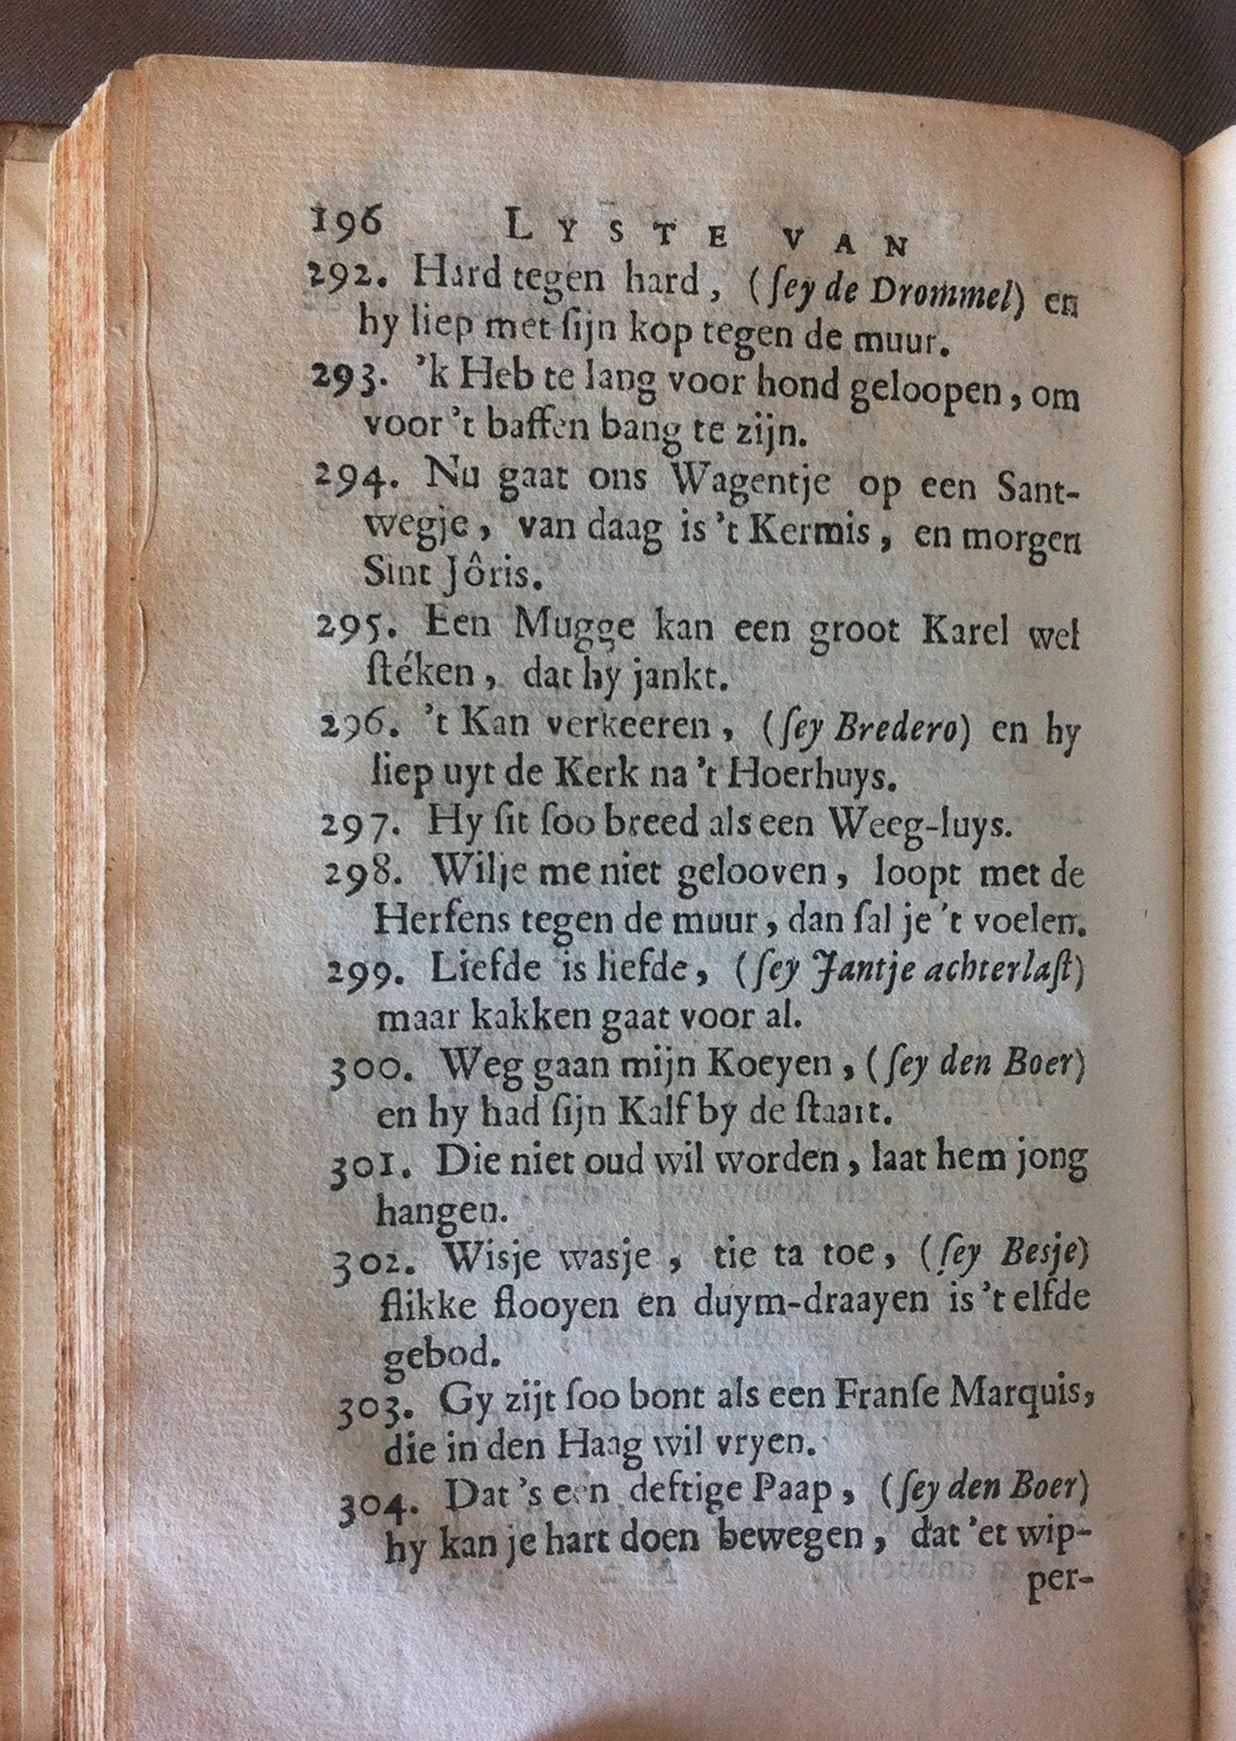 196 LYSTE VAN
292. Hard tegen hard, (ſey de Drommel) en
hy liep met ſijn kop tegen de muur.
293. 'k Heb te lang voor hond geloopen, om
voor 't baffen bang te zijn.
294. Nu gaat ons Wagentje op een Sant-
wegje, van daag is 't Kermis, en morgen
Sint Jôris.
295. Een Mugge kan een groot Karel wel
ſtéken, dat hy jankt.
296. 't Kan verkeeren, (ſey Bredero) en hy
liep uyt de Kerk na 't Hoerhuys.
297. Hy ſit ſoo breed als een Weeg-luys.
298. Wilje me niet gelooven, loopt met de
Herſens tegen de muur, dan ſal je 't voelen.
299. Liefde is liefde, (ſey Jantje achterlaſt)
maar kakken gaat voor al.
300. Weg gaan mijn Koeyen, (ſey den Boer)
en hy had ſijn Kalf by de ſtaart.
301. Die niet oud wil worden, laat hem jong
hangen.
302. Wisje wasje, tie ta toe, (ſey Besje)
flikke flooyen en duym-draayen is 't elfde
gebod.
303. Gy zijt ſoo bont als een Franſe Marquis,
die in den Haag wil vryen.
304. Dat 's een deftige Paap, (ſey den Boer)
hy kan je hart doen bewegen, dat 'et wip-
per-